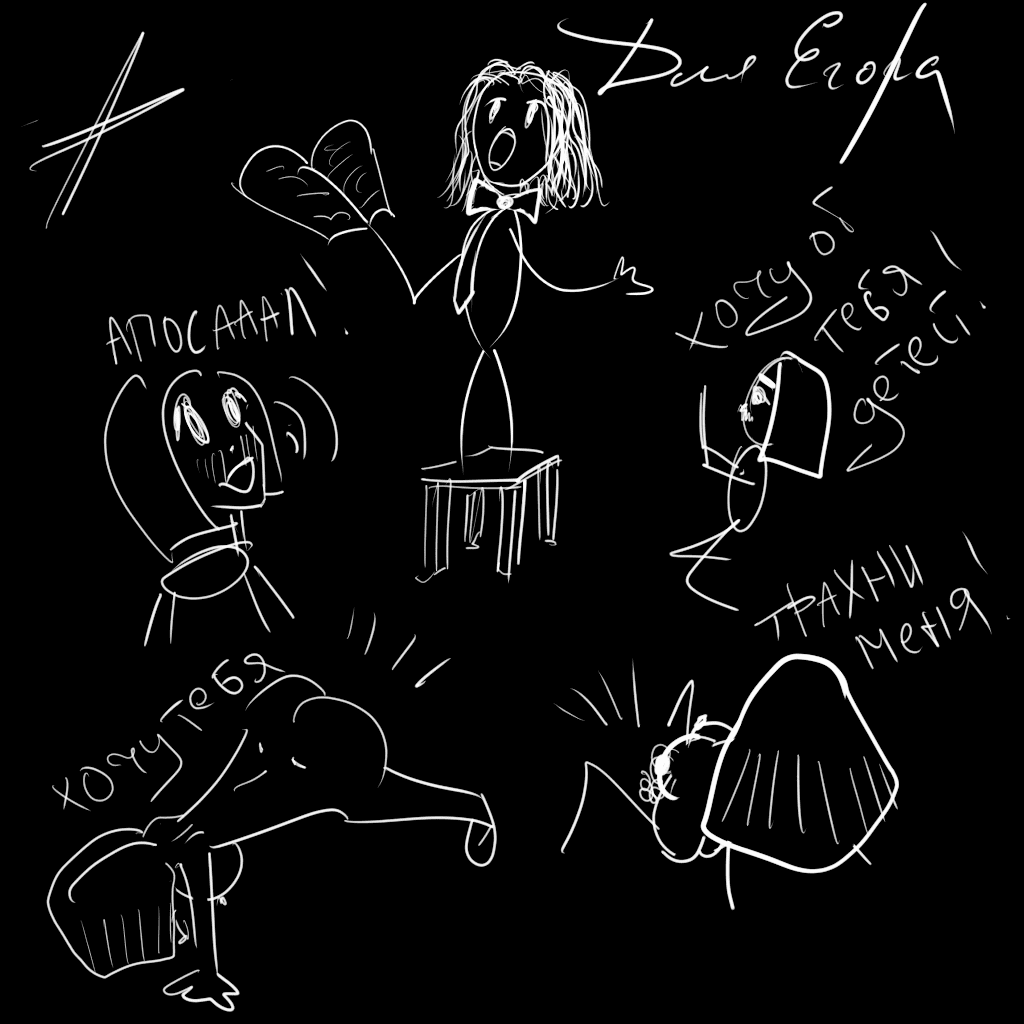 Для Егора
АПОСАААЛ!
ХОЧУ ОТ
ТЕБЯ
ДЕТЕЙ!
ТРАХНИ
МЕНЯ!
ХОЧУ ТЕБЯ